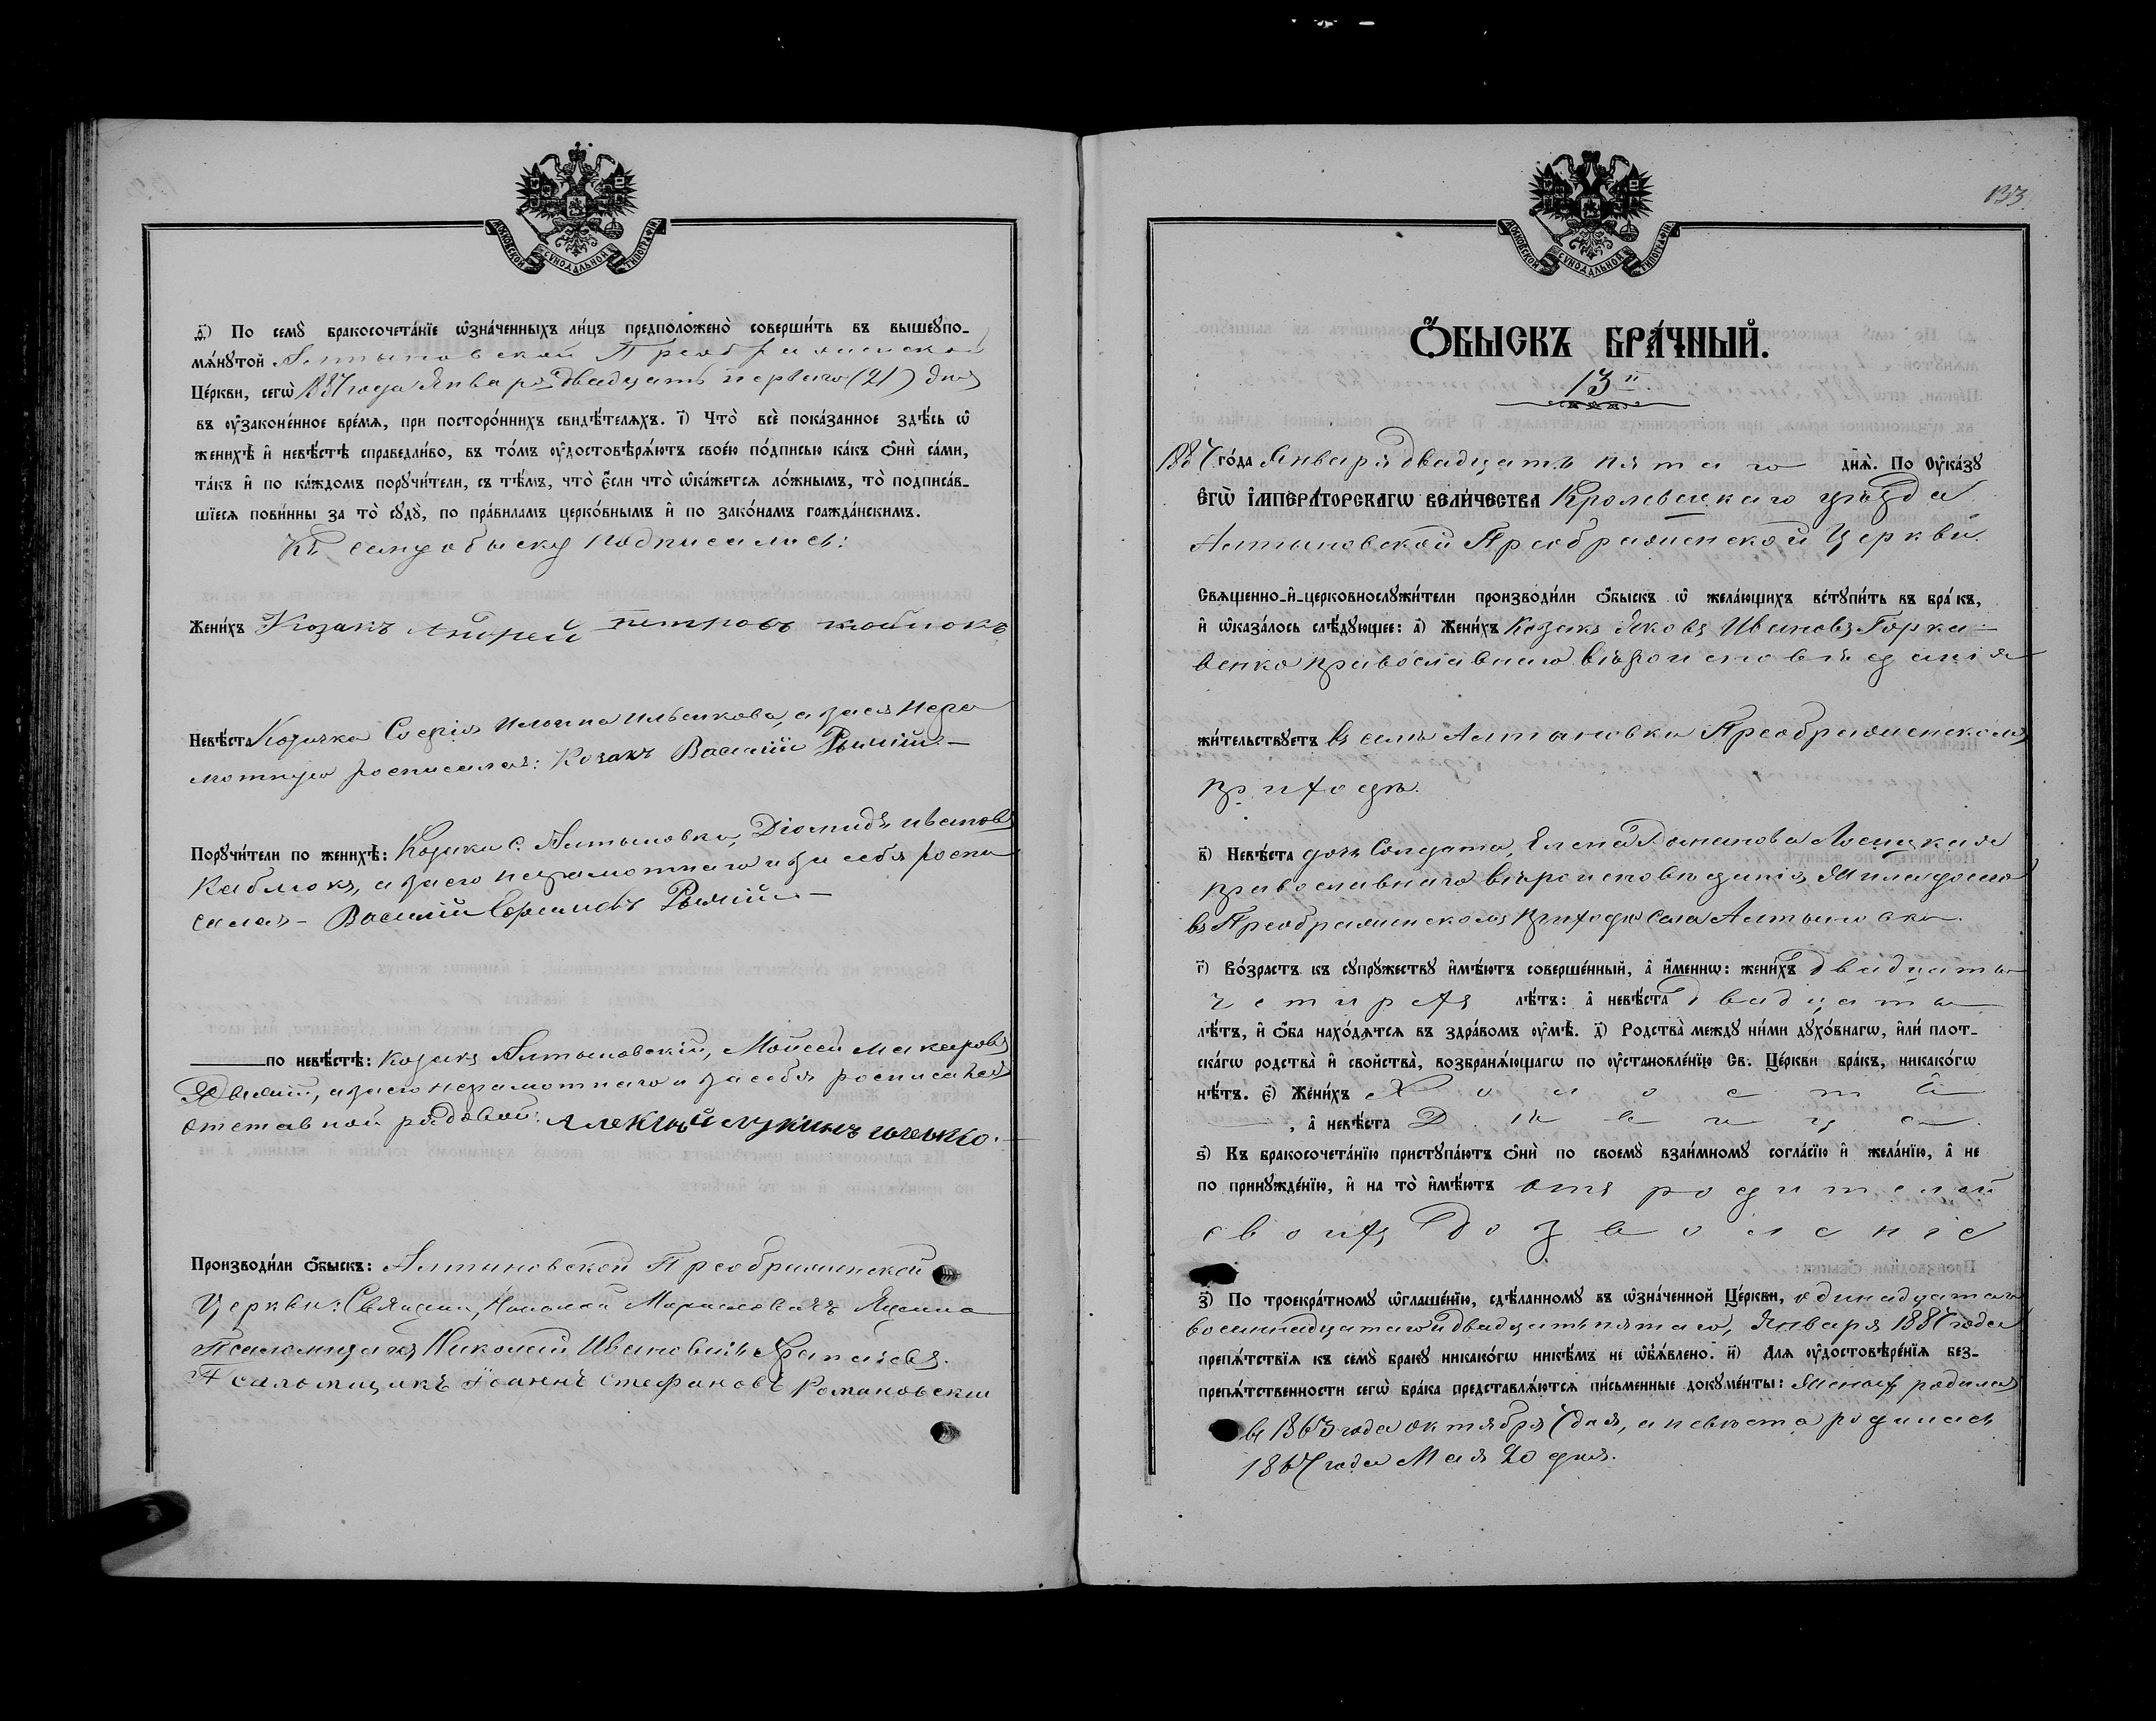 МОСКОВСКОЙ СѴНОДАЛЬНОЙ ТИПОГРАФІИ
д҃) По семꙋ̀ бракосочета́нїе ѡ҆зна́ченныхъ ли́цъ предположено̀ соверши́ть въ вышеꙋпо-
мѧ́нꙋтой Алтыновской Преображенской
Це́ркви, сегѡ̀ 1887 года Января двадцать перваго (21) дня
въ ᲂу҆законе́нное вре́мѧ, при посторо́ннихъ свидѣ́телѧхъ. і҃) Что̀ всѐ пока́занное здѣ́сь ѡ҆
женихѣ̀ и҆ невѣ́стѣ справедли́во, въ то́мъ ᲂу҆достовѣрѧ́ютъ свое́ю по́дписью ка́къ ѻ҆нѝ са́ми,
та́къ и҆ по ка́ждомъ порꙋчи́тели, съ тѣ́мъ, что̀ є҆́сли что̀ ѡ҆ка́жетсѧ ло́жнымъ, то̀ подписа́в-
шїесѧ пови́нны за то̀ сꙋдꙋ̀, по пра́виламъ церко́внымъ и҆ по зако́намъ гражда́нскимъ.
Къ сему обыску подписались:
Жени́хъ Козакъ Андрей Петровъ Каблюкъ
Невѣ́ста Козачка Софія Ильина Ильенкова, а за ея негра
мотную росписался: Козакъ Василій Рыжій.—
Порꙋчи́тели по женихѣ̀: Козаки с. Алтыновки, Діомидъ Ивановъ
Каблюкъ, а за его неграмотнаго и за себя роспи
сался— Василій Рыжій.—
по невѣ́стѣ: Козакъ Алтыновскій, Моисей Макаровъ
а за его неграмотнаго и за себя росписался
отставной рядовой: Алексѣй Лукинъ
Производи́ли ѻ҆́быскъ: Алтыновской Преображенской
Церкви: Священ. Николай
Псаломщикъ Николай Ивановичъ
Псаломщикъ Іоаннъ Стефановъ Романовскій
133.
МОСКОВСКОЙ СѴНОДАЛЬНОЙ ТИПОГРАФІИ
Ѻ҆́БЫСКЪ БРА́ЧНЫЙ.
13й
1887 го́да Января двадцать пятаго днѧ̀. По Оу҆ка́зꙋ
Є҆ГѠ̀ И҆МПЕРА́ТОРСКАГѠ ВЕЛИ́ЧЕСТВА Кролевецкаго уѣзда
Алтыновской Преображенской Церкви
Свѧщенно-и҆-церковнослꙋжи́тели производи́ли ѻ҆́быскъ ѡ҆ жела́ющихъ встꙋпи́ть въ бра́къ,
и҆ ѡ҆каза́лось слѣ́дꙋющее: а҃) Жени́хъ Козакъ Яковъ Ивановъ Горка-
венко православнаго вѣроисповѣданія
жи́тельствꙋетъ въ селѣ Алтыновки Преображенскомъ
приходѣ.
в҃) Невѣ́ста дочь Солдата, Елена Романова Лосицкая
православнаго вѣроисповѣданія
въ Преображенскомъ приходѣ села Алтыновки.
г҃) Во́зрастъ къ сꙋпрꙋ́жествꙋ и҆мѣ́ютъ соверше́нный, а҆ и҆́меннѡ: жени́хъ двадцать
четырехъ лѣ́тъ: а҆ невѣ́ста двадцать
лѣ́тъ, и҆ ѻ҆́ба нахо́дѧтсѧ въ здра́вомъ ᲂу҆мѣ̀. д҃) Родства̀ междꙋ ни́ми дꙋхо́внагѡ, и҆лѝ плот-
ска́гѡ родства̀ и҆ сво́йства̀, возбранѧ́ющагѡ по ᲂу҆становле́нїю Св. Це́ркви бра́къ, никако́гѡ
нѣ́тъ. є҃) Жени́хъ Холостъ
, а҆ невѣ́ста Дѣвица.
ѕ҃) Къ бракосочета́нїю пристꙋпа́ютъ ѻ҆нѝ по своемꙋ̀ взаи́мномꙋ согла́сїю и҆ жела́нїю, а҆ не
по принꙋжде́нїю, и҆ на то̀ и҆мѣ́ютъ отъ родителей
своихъ дозволеніе
з҃) По троекра́тномꙋ ѡ҆глаше́нїю, сдѣ́ланномꙋ въ ѡ҆зна́ченной Це́ркви, одинадцатаго
восемнадцатаго и двадцать пятаго, Января 1887 года
препѧ́тствїѧ къ семꙋ̀ бракꙋ никако́гѡ никѣ́мъ не ѡ҆б̾ѧ́влено. и҃) Для ᲂу҆достовѣре́нїѧ без-
препѧ́тственности сегѡ̀ бра́ка представлѧ́ютсѧ пи́сьменные докꙋме́нты: Женихъ родился
въ 1863 года октября 7 дня, а невѣста родилась
1867 года Мая 20 дня.